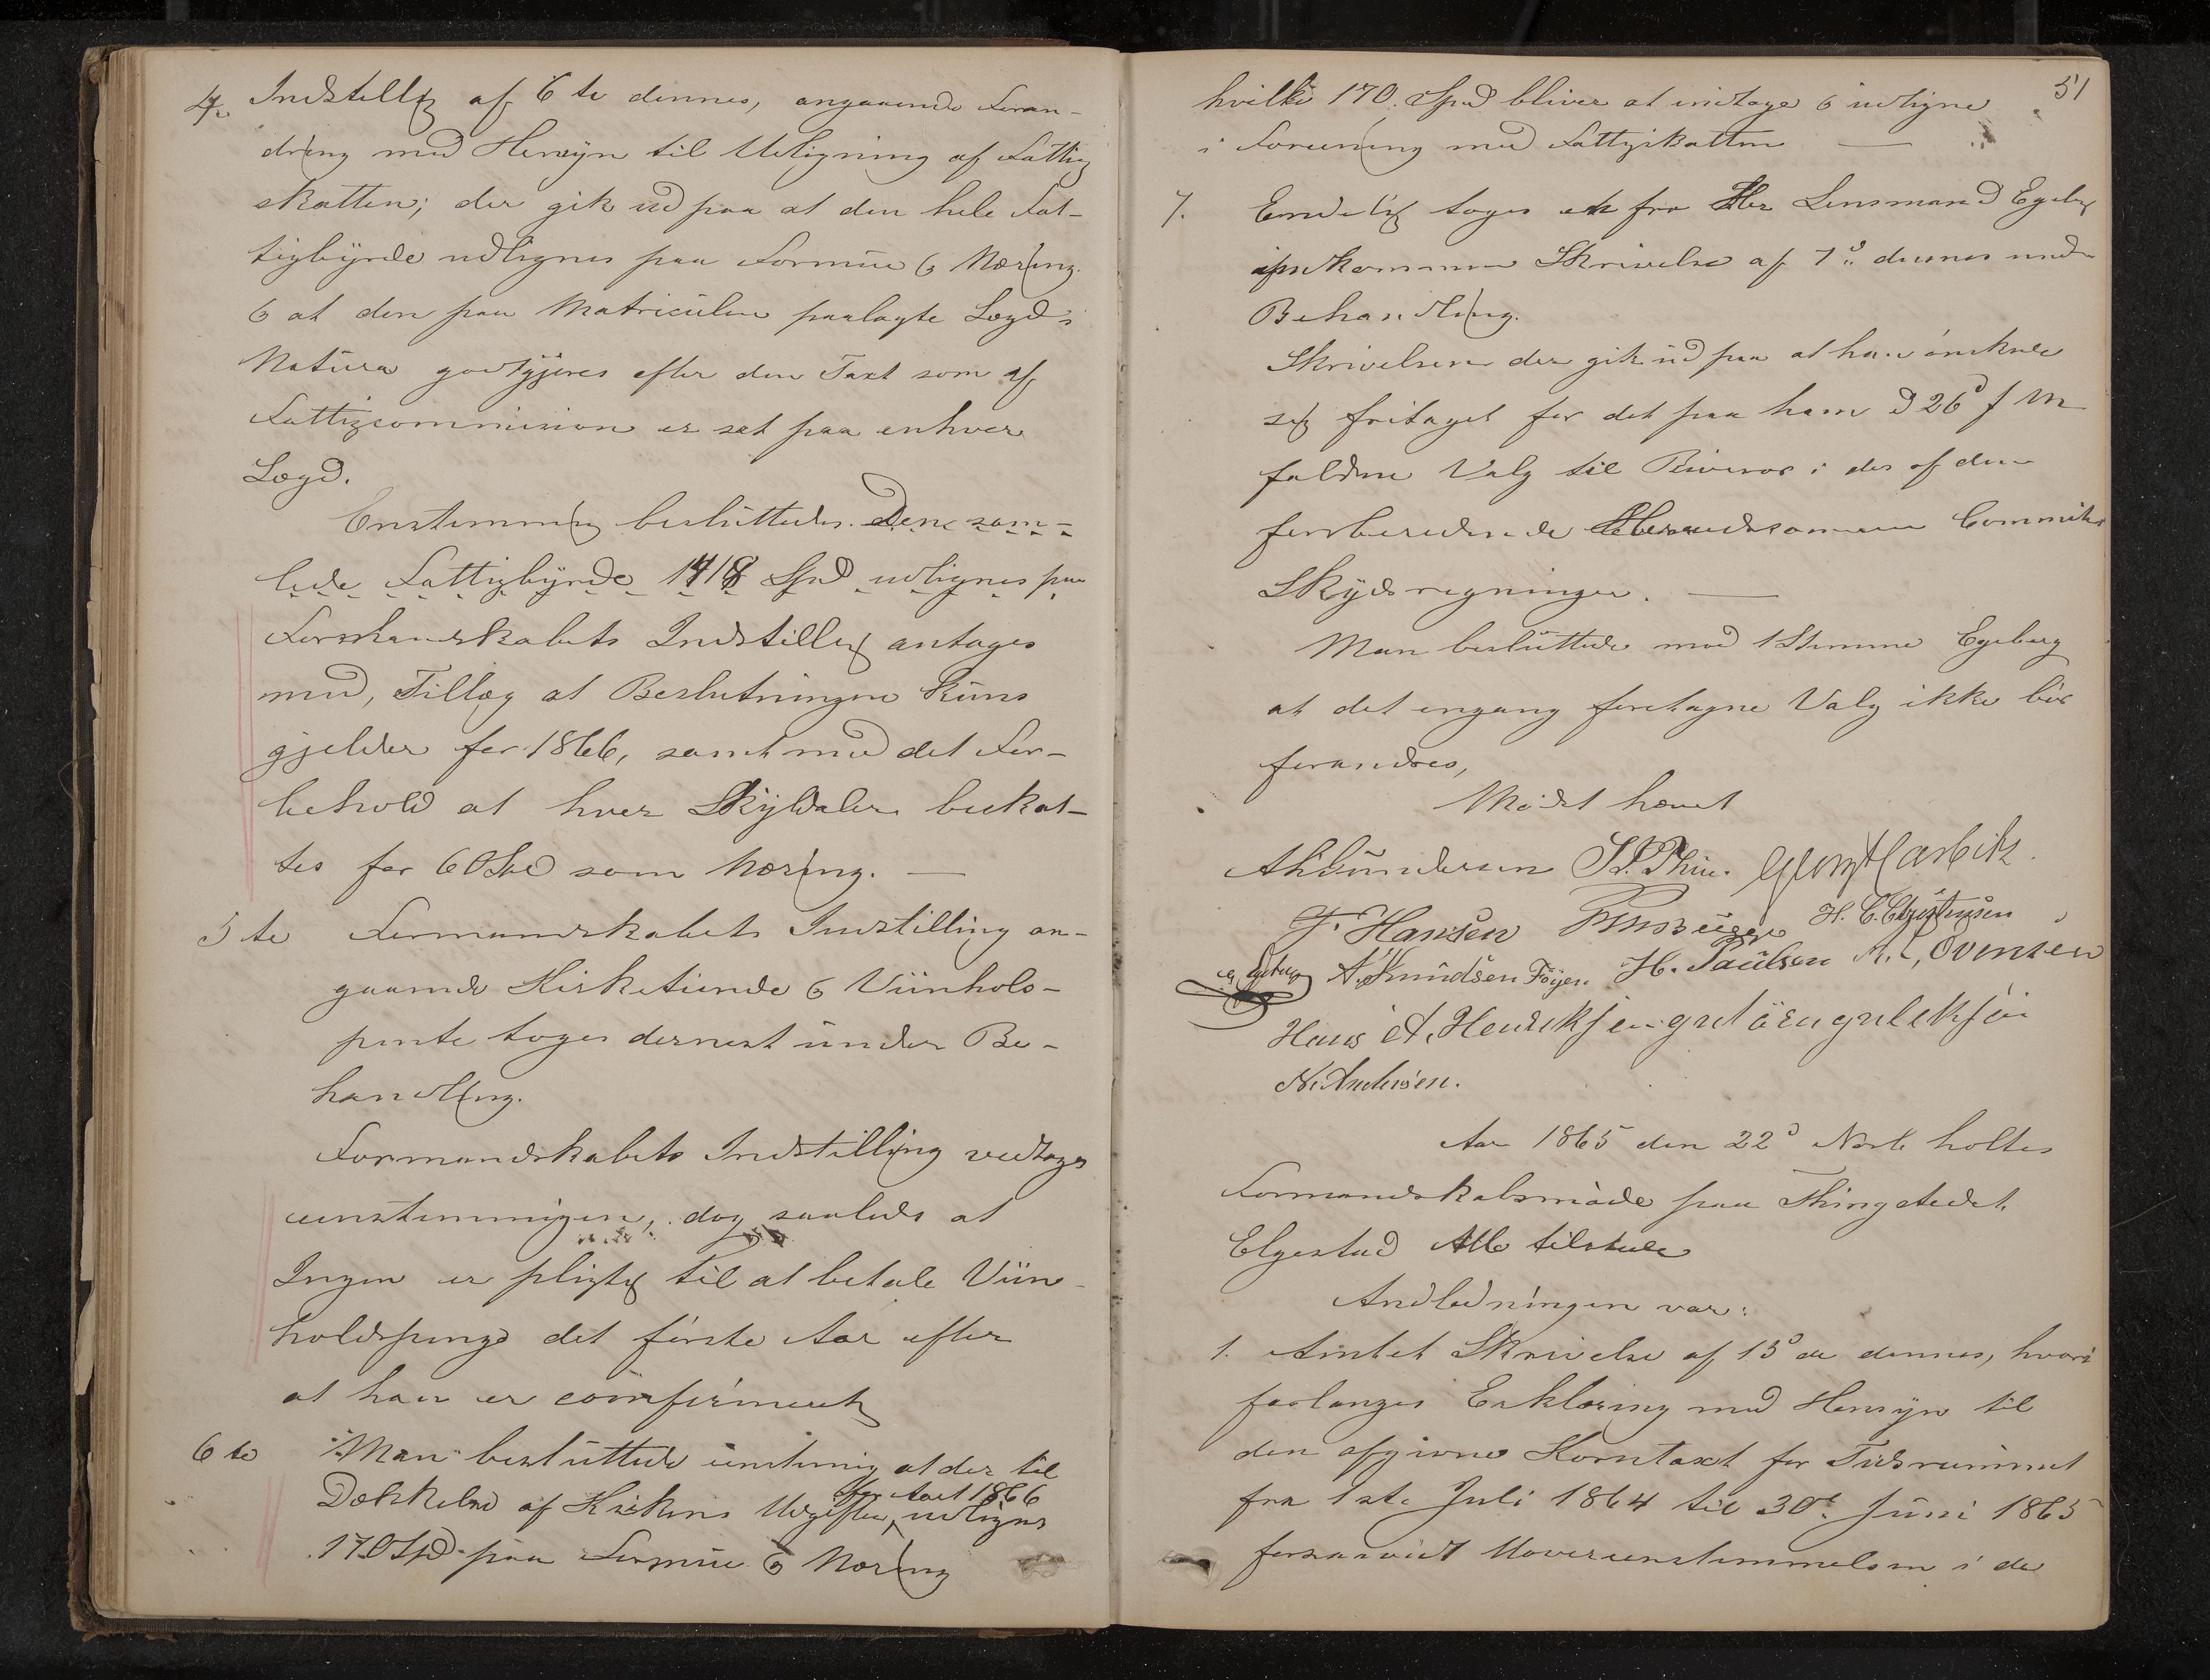 4. Indstillig af 6te dennes, angaaende Foran-
dring med Hensyn til Udligning af Fattig
skatten; der gik ud paa at den hele Fat-
tigbyrde udlignes paa Formue og Næring.
og at den paa Matriculen paalagte Lægd i
Natura godtgjøres efter den Taxt som af
Fattigcommision er sat paa enhver
Lægd.
Enstemmig besluttedes. Den sam-
lede Fattigbyrde 1418 Spd udlignes paa
Formandskabets Indstillig antages
med, Tillæg at Beslutningen kuns
gjelder for 1866, samt med det For-
behold at hver Skyldaler beskat-
tes for 60 Spd som Næring. —
5te Formandskabets Indstilling an-
gaaende Kirketiende og Viinholds-
penge toges dernest under Be-
handling.
Formandskabets Indstilling vedtoges
eenstemmigen, dog saaledes at
Ingen er pligtig til at betale Viin-
holdspenge det første Aar efter
at han er comfirmeret
6te Man besluttede eenstemig at der til
for Aaret 1866
Dækkelse af Kirkens Udgifter, udlignes
170 Spd paa Formue og Næring
51
hvilke 170 Spd bliver at indtage og udligne
i Forening med Fattigskatten —
7. Endelig toges en fra Her Lensmand Egeberg
indkommen Skrivelse af 7de dennes under
Behandling.
Skrivelsen der gik ud paa at han ønskede
sig fritaget for det paa ham d 26d f M
faldne Valg til Revisor i de af den
forberedende Herredscommun Commite
Skydsregninger. —
Man besluttede mod 1 Stemme Egeberg
at det engang foretagne Valg ikke bør
forandres,
Mødet hævet
A Gundersen
F. Hansen H. C. Christensen
Egeberg A. Knudsen Føyen. H. Paulsen A. E, Ovensen
Hans A. Hendriksen
N. Andersen.
Aar 1865 den 22d Novb holtes
Formandskabsmøde paa Thingstedet
Elgestad Alle tilstede
Andledningen var:
1. Amtet Skrivelse af 15de dennes, hvori
forlanges Erklæring med Hensyn til
den afgivne Korntaxt for Tidsrummet
fra 1ste Juli 1864 til 30te Juni 1865
forsaavidt Uoverenstemmelsen i de